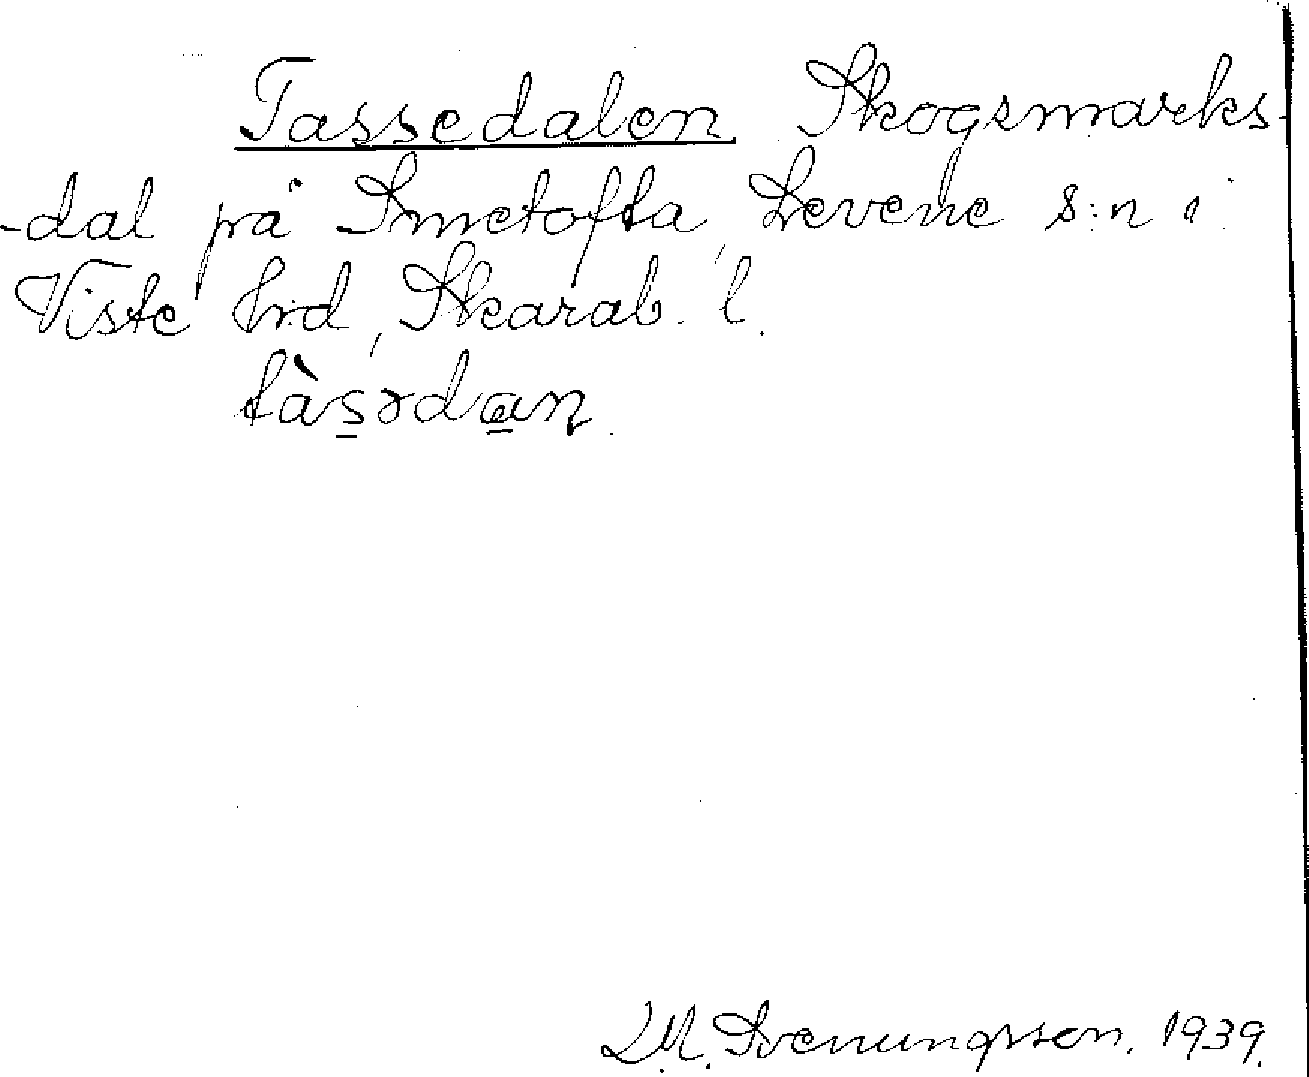 Tassedalen Skogsmarks-
-dal på Smetofta, Levene s:n i
Viste hrd, Skarab. l.
tàs̲əda̲n.
L.M. Svenungsson. 1939.